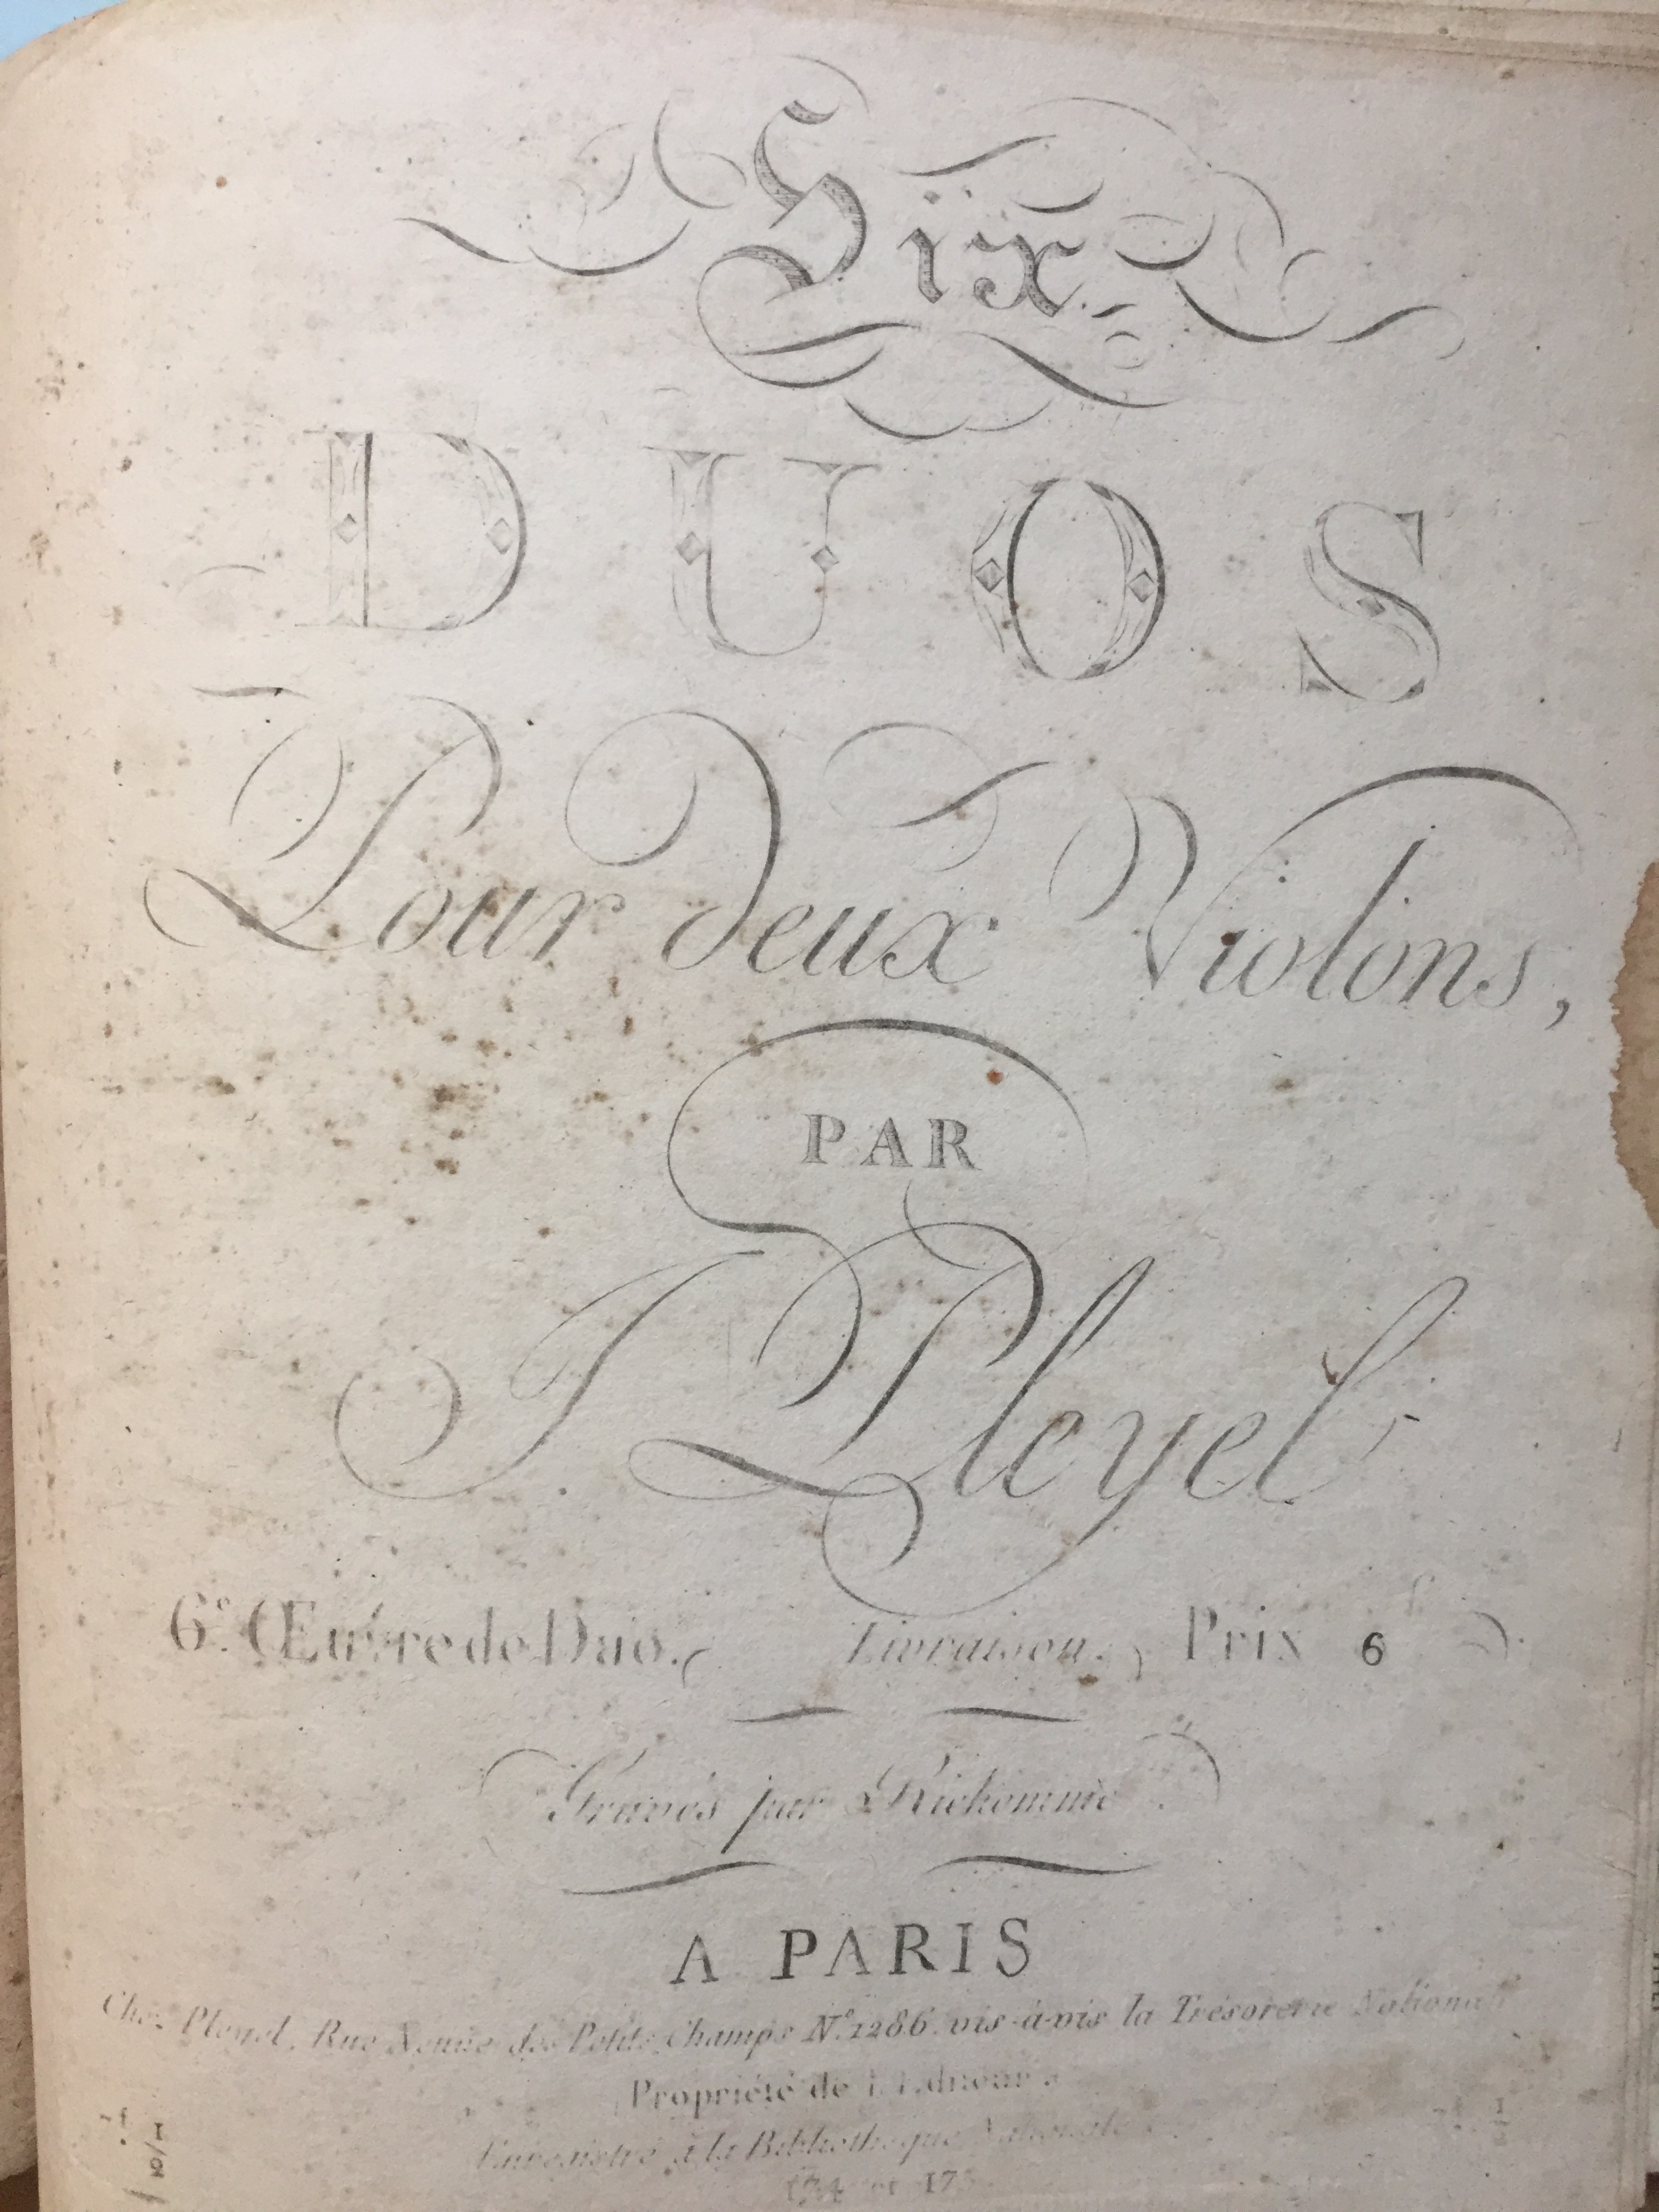 Six
DUOS
Pour deux Violons,
PAR
I. Pleyel
6.e Œuvre de Duo. Livraison. Prix 6
Gravés par Richomme
A PARIS
Chez Pleyel, Rue Neuve des Petits Champs N.o 1286. vis-à-vis la Trésorerie Nationale
Propriété de l'Editeur
Enregistré à la Bibliotheque Nationale
174 et 175